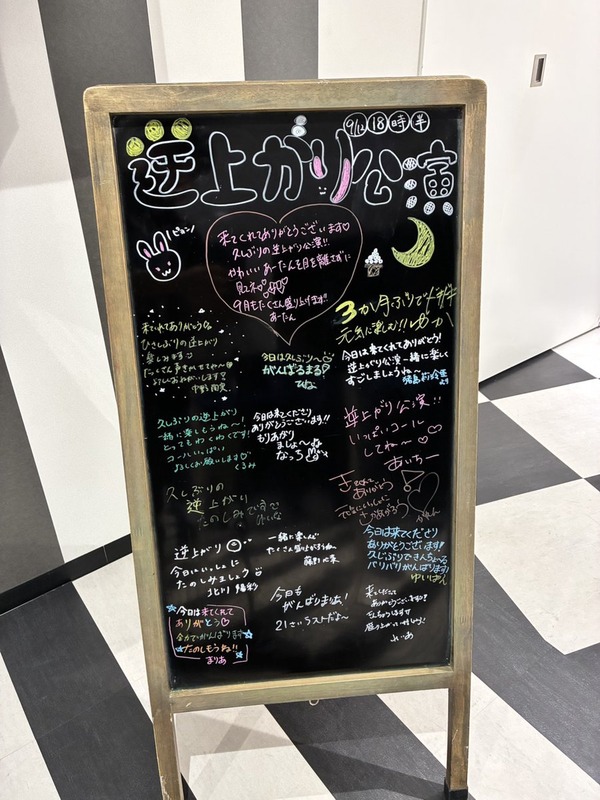 9/12 18時半
逆上がり公演
ピョン
来てくれてありがとうございます♡
久しぶりの逆上がり公演!!
かわいいあーたんを目を離さずに
9月もたくさん盛り上げます!!
あーたん
3か月ぶりでドキドキ
元気に楽しむ!! ゆか
来てくれてありがとう
ひさしぶりの逆上がり
楽しみます
たくさん声きかせてね〜
よろしくおねがいします
今日は久しぶり〜
がんばるまる!
ひな
今日は来てくれてありがとう!
逆上がり公演一緒に楽しく
すごしましょうね〜
久しぶりの逆上がり
一緒に楽しもうね〜!
とってもわくわくです!
コールいっぱい
よろしくお願いします♡
くるみ
今日は来てくださり
ありがとうございます!!
もりあがり
ましょ〜
なっち
逆上がり公演!!
いっぱいコール
してね〜♡♡
あいちー
久しぶりの
逆上がり
たのしみです
きてくれて
ありがとう
逆上がり
今日はいっしょに
たのしみましょう
北川 陽彩
一緒に楽しんで
たくさん盛り上がろうね
今日は来てくださり
ありがとうございます!
久しぶりできんちょ〜る
バリバリがんばります!
ゆいぱん
今日は来てくれて
ありがとう♡
全力でがんばります
たのしもうね!!
まりあ
今日も
がんばりまぁ!
21さいラストだな〜
来てくださって
ありがとうございます♡